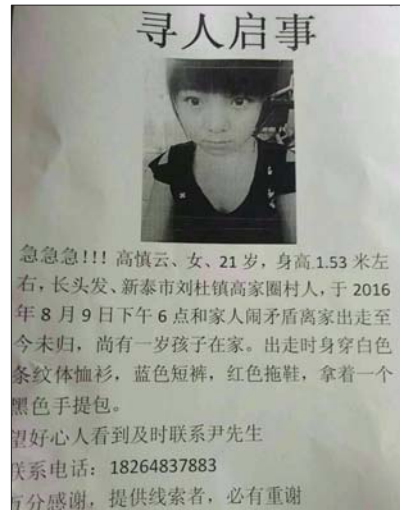 寻人启事
急急急!!! 高慎云、女、21 岁，身高.1.53 米左
右，长头发、新泰市刘杜镇高家圈村人，于 2016
年 8 月 9 日下午 6 点和家人闹矛盾离家出走至
今未归，尚有一岁孩子在家。出走时身穿白色
条纹体恤衫，蓝色短裤，红色拖鞋，拿着一个
黑色手提包。
望好心人看到及时联系尹先生
联系电话：18264837883
万分感谢，提供线索者，必有重谢